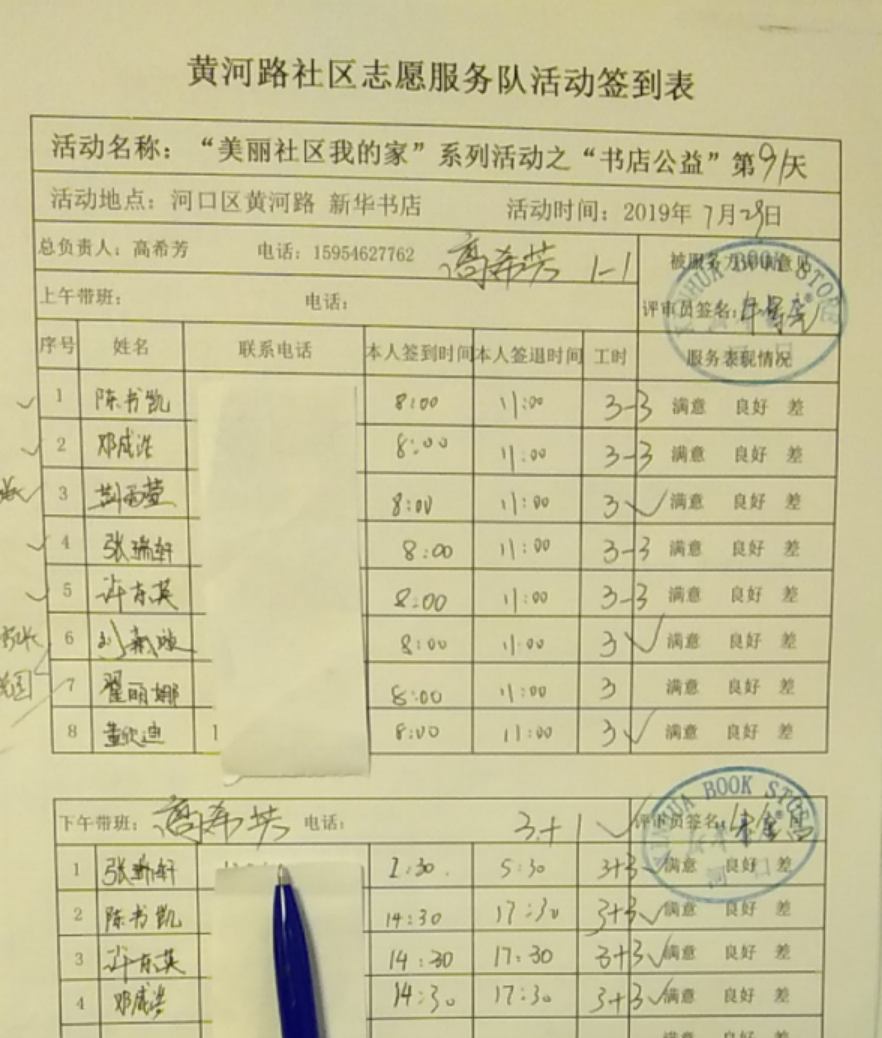 黄河路社区志愿服务队活动签到表
活动名称：“美丽社区我的家”系列活动之“书店公益”第91天
活动地点：河口区黄河路 新华书店 活动时间：2019年7月29日
总负责人：高希芳 电话：15954627762 高希芳 1-1 被服务方 意见
上午带班： 电话： 评审员签名：
XINHUA BOOK STORE
序号 姓名 联系电话 本人签到时间 本人签退时间 工时 服务表现情况
1 陈书凯 8:00 11:00 3-3 满意 良好 差
2 邓成浩 8:00 11:00 3-3 满意 良好 差
3 8:00 11:00 3 满意 良好 差
4 张瑞轩 8:00 11:00 3-3 满意 良好 差
5 许东英 8:00 11:00 3-3 满意 良好 差
6 8:00 11:00 3 满意 良好 差
7 翟丽娜 8:00 11:00 3 满意 良好 差
8 董欣迪 1 8:00 11:00 3 满意 良好 差
XINHUA BOOK STORE
下午带班：高希芳 电话： 3+1 评审员签名：
河 口
1 张瑞轩 2:30 5:30 3+3 满意 良好 差
2 陈书凯 14:30 17:30 3+3 满意 良好 差
3 许东英 14:30 17:30 3+3 满意 良好 差
4 邓成浩 14:30 17:30 3+3 满意 良好 差
满意 良好 差